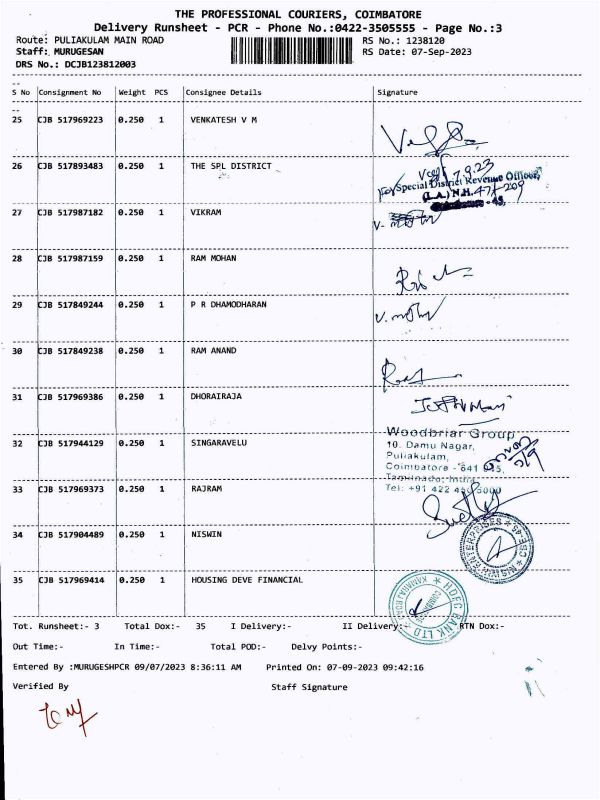 THE PROFESSIONAL COURIERS, COIMBATORE
Delivery Runsheet - PCR - Phone No.:0422-3505555 - Page No.:3
Route: PULIAKULAM MAIN ROAD RS No.: 1238120
Staff: MURUGESAN RS Date: 07-Sep-2023
DRS No.: DCJB123812003
S No Consignment No Weight PCS Consignee Details Signature
25 CJB 517969223 0.250 1 VENKATESH V M
26 CJB 517893483 0.250 1 THE SPL DISTRICT
7.9.23
for Special District Revenue Officer,
(L.A.) N.H. 47 & 209
- 45.
27 CJB 517987182 0.250 1 VIKRAM
28 CJB 517987159 0.250 1 RAM MOHAN
29 CJB 517849244 0.250 1 P R DHAMODHARAN
30 CJB 517849238 0.250 1 RAM ANAND
31 CJB 517969386 0.250 1 DHORAIRAJA
32 CJB 517944129 0.250 1 SINGARAVELU
Woodbriar Group
10. Damu Nagar,
Puliakulam,
Coimbatore - 641 045,
Tamilnadu, India
Tel: +91 422 450 5000
33 CJB 517969373 0.250 1 RAJRAM
34 CJB 517904489 0.250 1 NISWIN
NISWIN ENTERPRISES CBE-45
35 CJB 517969414 0.250 1 HOUSING DEVE FINANCIAL
HDFC BANK LTD
Tot. Runsheet:- 3 Total Dox:- 35 I Delivery:- II Delivery:- RTN Dox:-
Out Time:- In Time:- Total POD:- Delvy Points:-
Entered By :MURUGESHPCR 09/07/2023 8:36:11 AM Printed On: 07-09-2023 09:42:16
Verified By Staff Signature